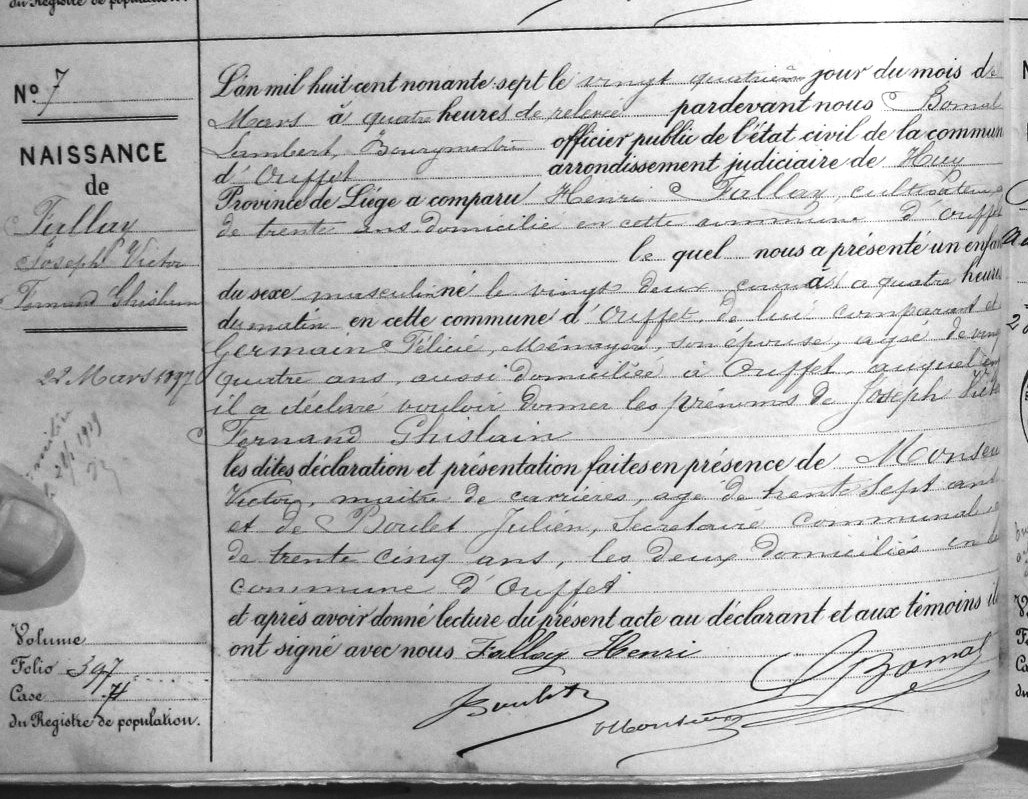 du Registre de population.
Nº 7
NAISSANCE
de
Fallay
Joseph Victor
Fernand Ghislain
22 Mars 1897
Volume
Folio 397
Case 4
du Registre de population.
L'an mil huit cent nonante sept le vingt quatrième jour du mois de
Mars à quatre heures de relevée pardevant nous Bomal
Lambert, Bourgmestre officier public de l'état civil de la commun
d'Ouffet arrondissement judiciaire de Huy
Province de Liége a comparu Henri Fallay, cultivateur
de trente ans domicilié en cette commune d'Ouffet
le quel nous a présenté un enfan
du sexe masculin né le vingt deux courant à quatre heures
du matin en cette commune d'Ouffet, de lui comparant et
Germain Félicie, Ménagère, son épouse, agée de vingt
quatre ans, aussi domiciliée à Ouffet, auquel
il a déclaré vouloir donner les prénoms de Joseph Victor
Fernand Ghislain
les dites déclaration et présentation faites en présence de Monseu
Victor, maître de carrières, agé de trente sept ans
et de Boulet Julien, Secretaire communal
de trente cinq ans, les deux domiciliés en la
commune d'Ouffet
et après avoir donné lecture du présent acte au déclarant et aux témoins il
ont signé avec nous Fallay Henri
LBomal
JBoulet
VMonseu